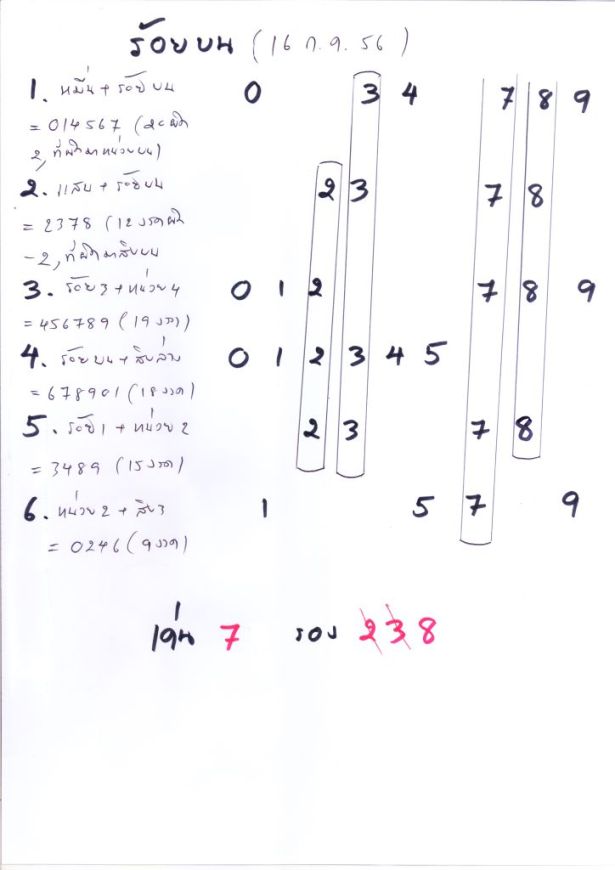 ร้อยบน (16 ก.ค. 56)
1. หมื่น + ร้อยบน 0 3 4 7 8 9
= 014567 (20 ผิด
2, ที่ผิดมาหน่วยบน)
2. แสน + ร้อยบน 2 3 7 8
= 2378 (12 งวดผิด
-2, ที่ผิดมาสิบบน
3. ร้อย 3 + หน่วย 4 0 1 2 7 8 9
= 456789 (19 งวด)
4. ร้อยบน + สิบล่าง 0 1 2 3 4 5
= 678901 (18 งวด)
5. ร้อย 1 + หน่วย 2 2 3 7 8
= 3489 (15 งวด)
6. หน่วย 2 + สิบ 3 1 5 7 9
= 0246 (9 งวด)
เด่น 7 รอง 2 3 8